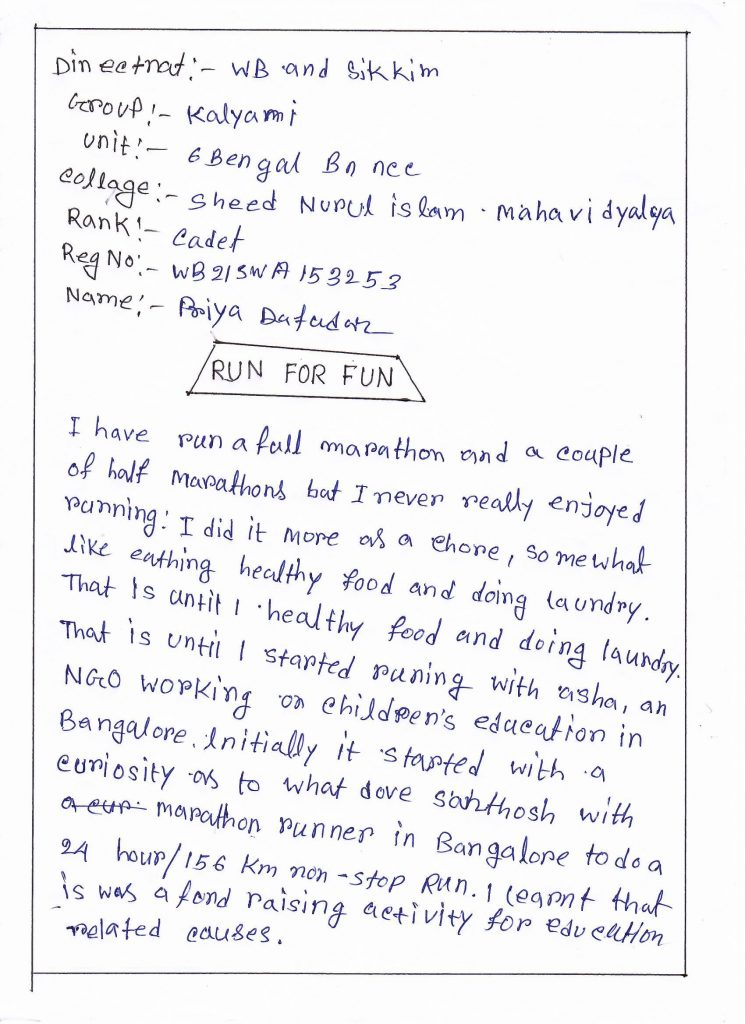 Dinectnat:- WB and Sikkim
Group:- Kalyami
unit:- 6 Bengal Bn ncc
collage:- Sheed Nurul islam. mahavidyalya
Rank:- Cadet
Reg No:- WB21SWA153253
Name:- Priya Dafadar
RUN FOR FUN
I have run a full marathon and a couple
of half marathons but I never really enjoyed
running: I did it more as a chore, somewhat
like eathing healthy food and doing laundry.
That Is until I healthy food and doing laundry.
That is until I started runing with asha, an
NGO working on children's education in
Bangalore. Initially it started with a
curiosity as to what dove santhosh with
a cur marathon runner in Bangalore to do a
24 hour/156 Km non-stop Run. I learnt that
is was a fond raising activity for education
related causes.